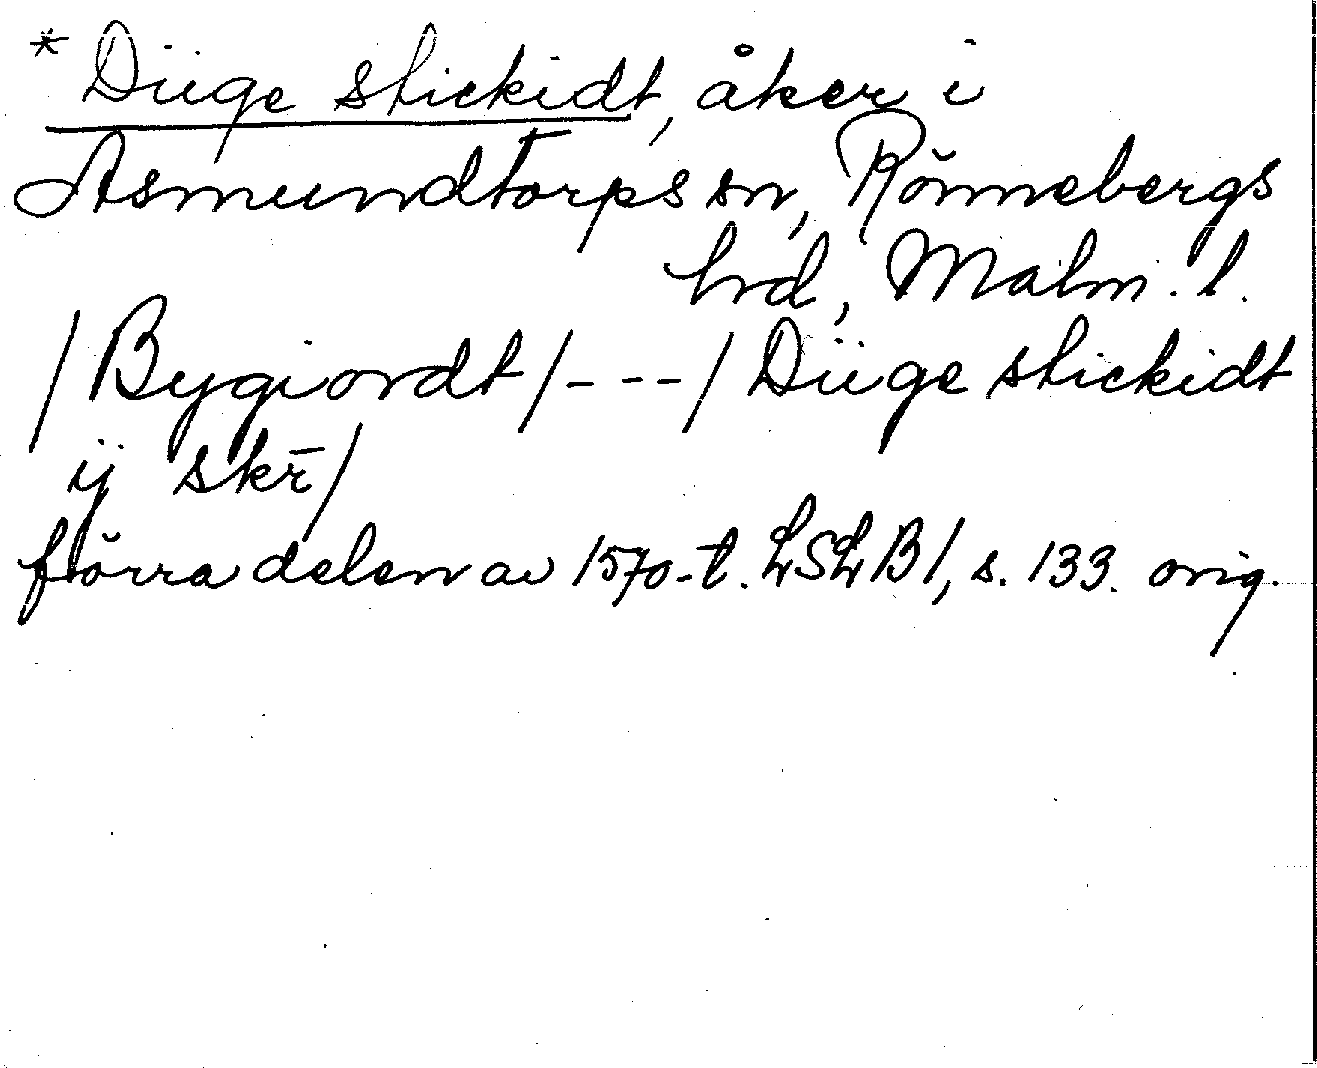 * Düge stickidt, åker i
Asmundtorps sn, Rönnebergs
hrd, Malm. l.
/Bygiordt/---/Düge stickidt
ij skr̄/
förra delen av 1570-t. LSLB1, s. 133. orig.